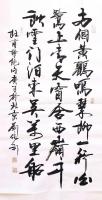 两個黄鸝鳴翠柳一行白
鷺上青天窗含西嶺千
秋雪門泊東吴萬里船
杜甫 北京